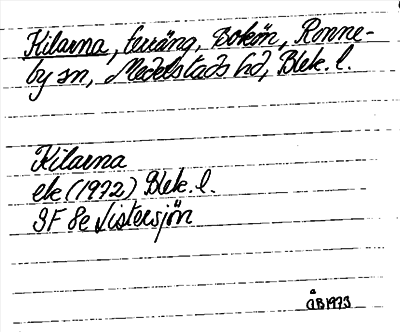 Kilarna, terräng, Bokön, Ronne-
by sn, Medelstads hd, Blek. l.
Kilarna
ek (1972) Blek. l.
3F 8e Listersjön
ÅB1973